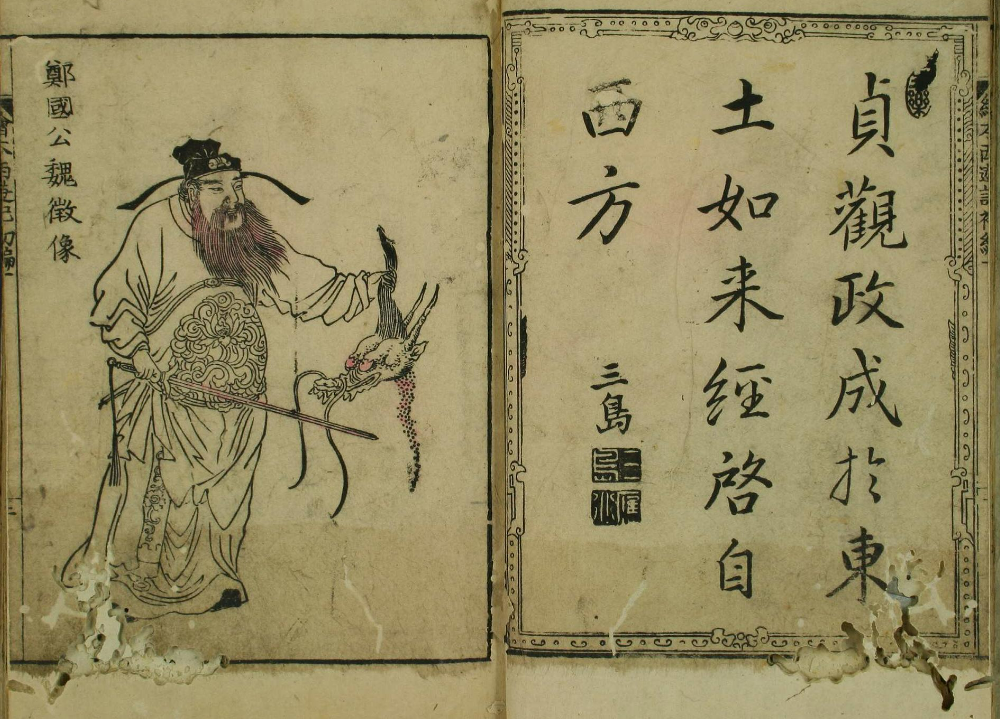 貞觀政成於東
土如来經啓自
西方
三島
鄭國公魏徵像